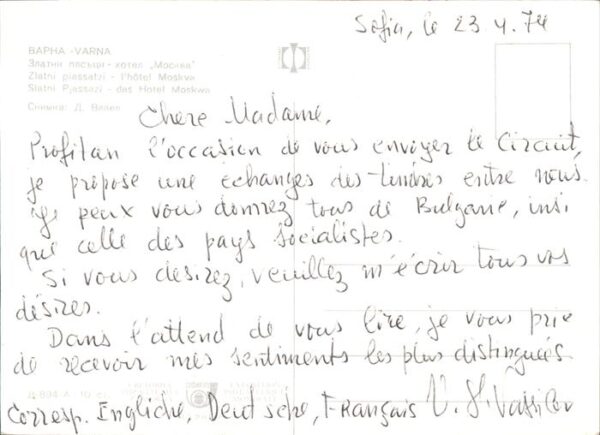 Sofia, le 23.4.74
ВАРНА - VARNA
Златни пясъци - хотел „Москва“
Zlatni piassatzi - l'hôtel Moskwa
Slatni Pjassazi - das Hotel Moskwa
Снимка: Д. Вилев
Chere Madame,
Profitan l'occasion de vous envoyer le Circuit,
je propose une echanges des timbres entre nous.
Je peux vous donnez tous de Bulgarie, insi
que celle des pays socialistes.
Si vous desirez, veuillez m'écrir tous vos
désires.
Dans l'attend de vous lire, je vous prie
de recevoir mes sentiments les plus distingués
Corresp. Engliche, Deutsche, Français V. Vassilev